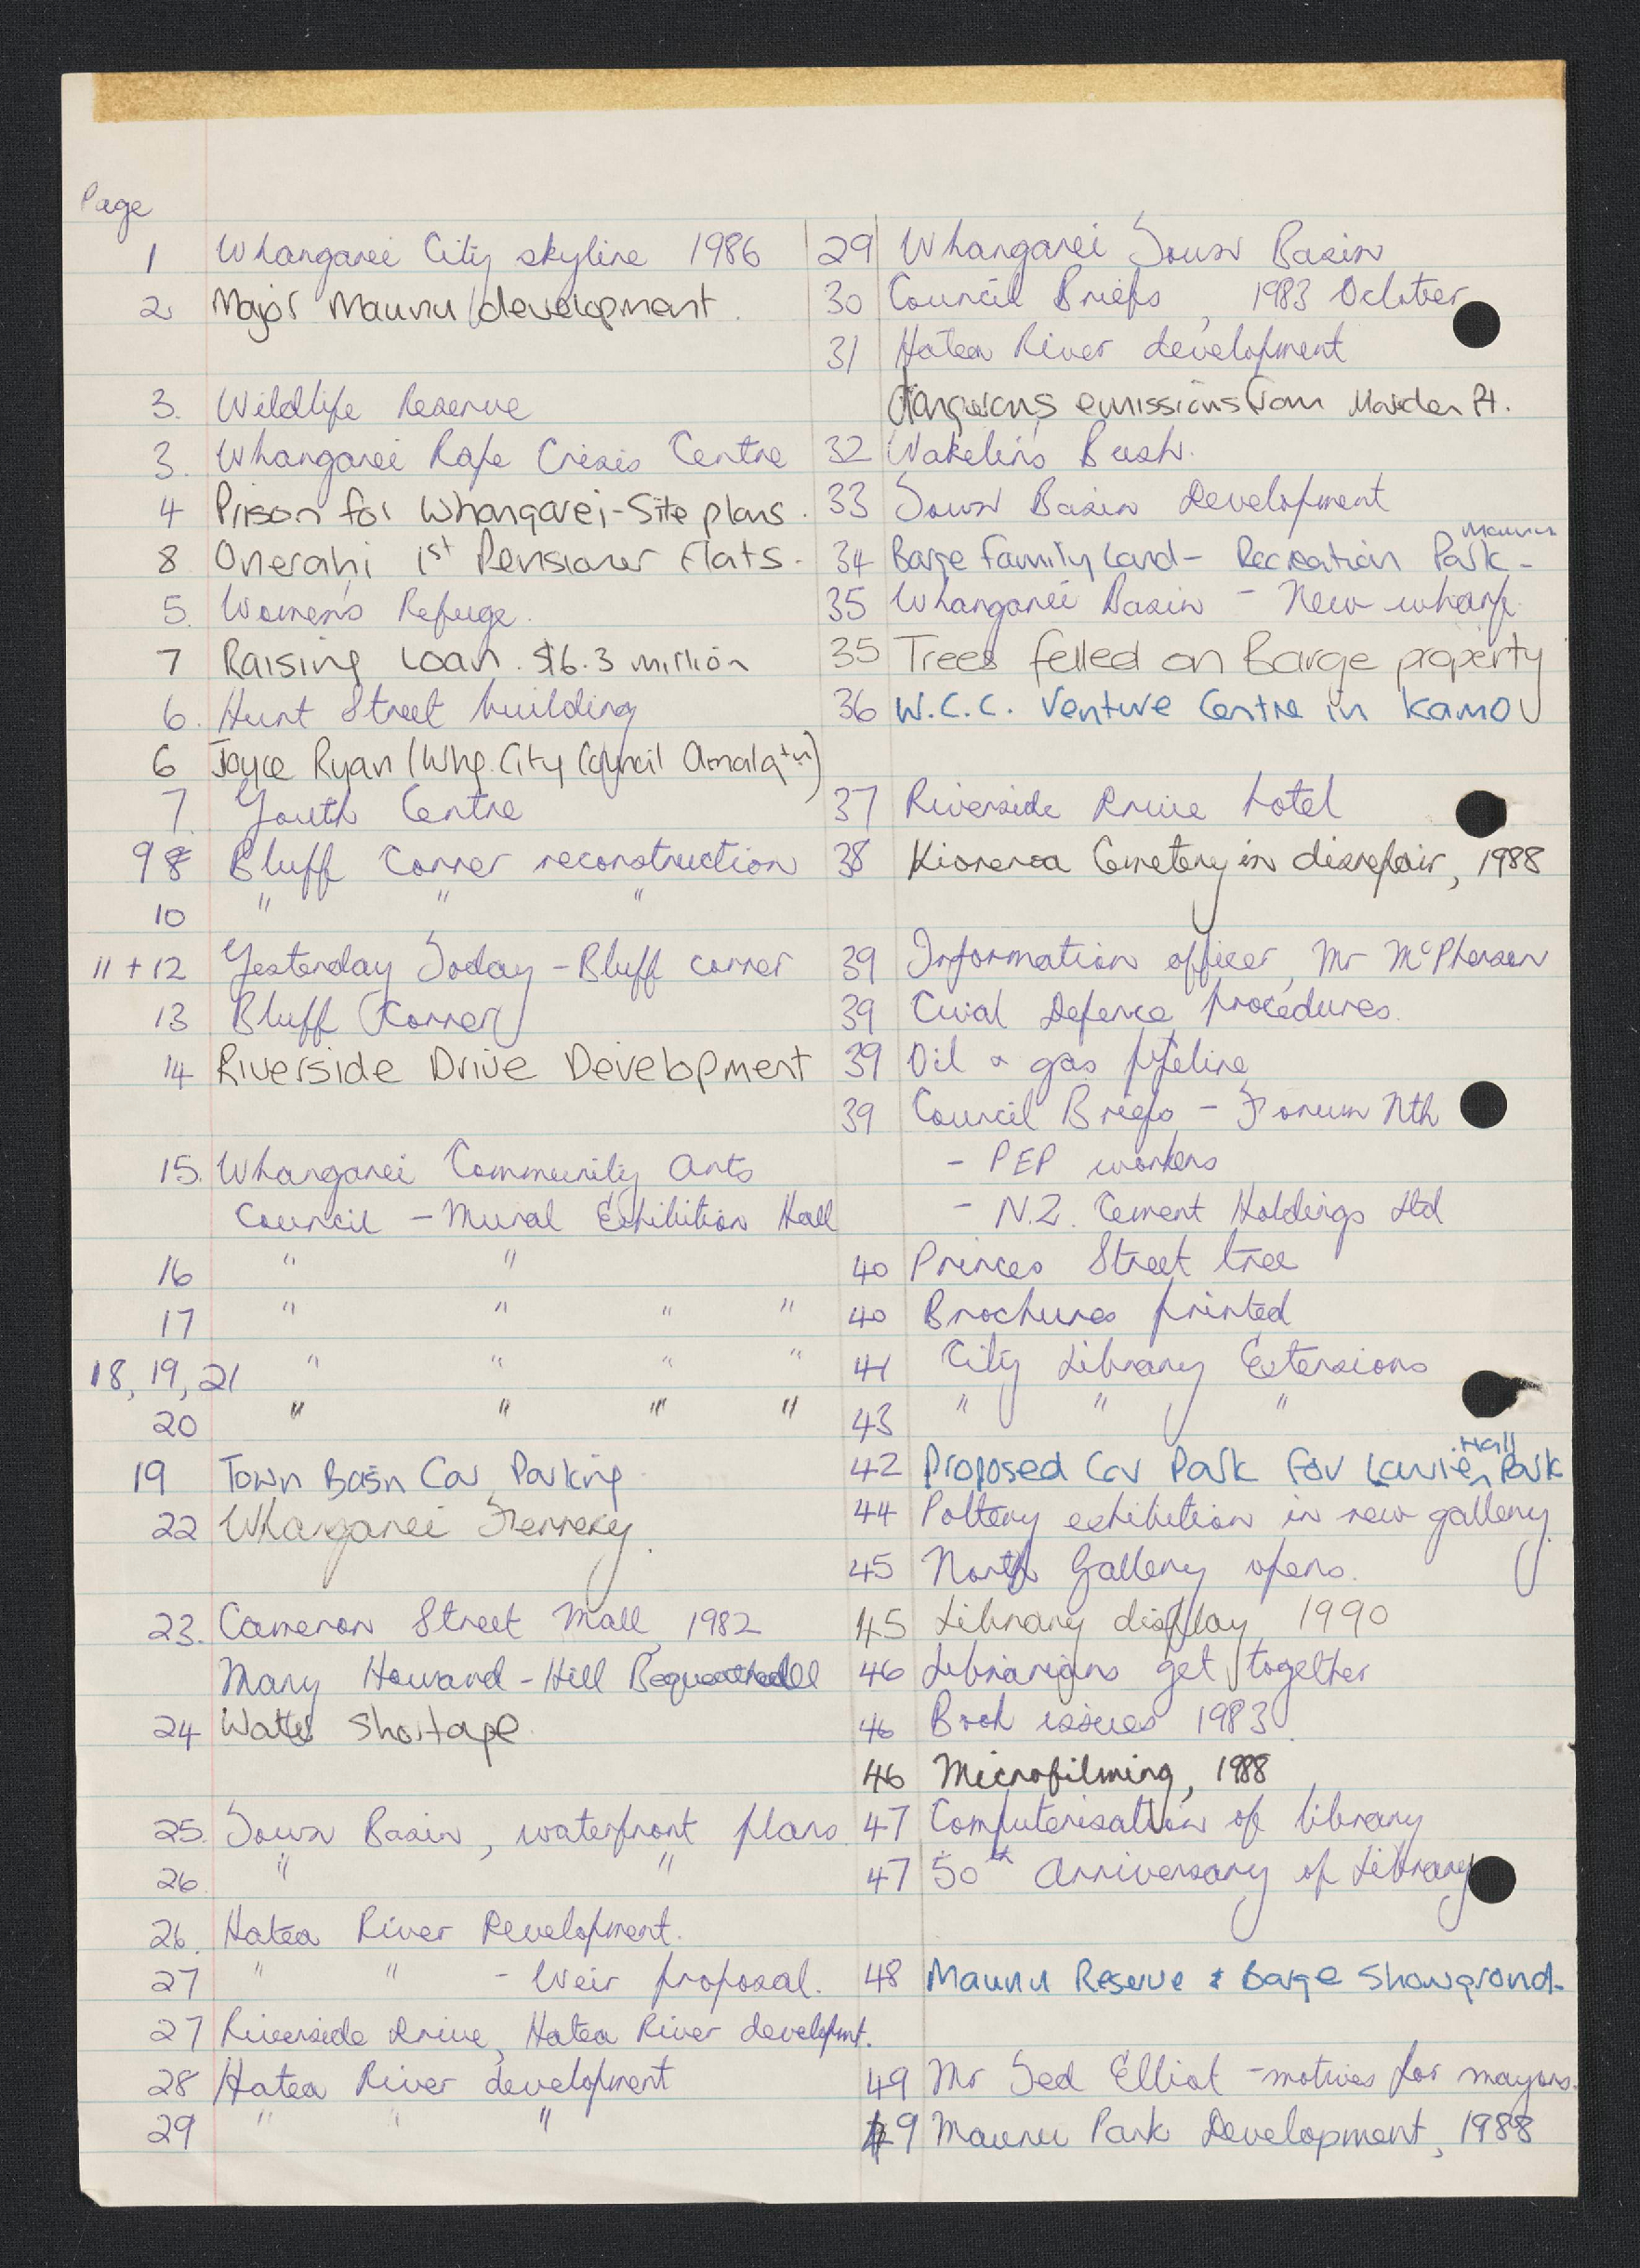 Page
1 Whangarei City skyline 1986
2 Major Maunu development.
3. Wildlife Reserve
3. Whangarei Rape Crisis Centre
4 Prison for Whangarei-Site plans.
8 Onerahi 1st Pensioner Flats.
5. Women's Refuge.
7 Raising Loan. $16.3 million
6. Hunt Street building
6 Joyce Ryan (Whg. City Council Amalgtn)
7. Youth Centre
9 8 Bluff Corner reconstruction
10 " " "
11 + 12 Yesterday Today - Bluff corner
13 Bluff Corner
14 Riverside Drive Development
15. Whangarei Community Arts
Council - Mural Exhibition Hall
16 " "
17 " " " "
18, 19, 21 " " " "
20 " " " "
19 Town Basin Car Parking
22 Whangarei Fernery.
23. Cameron Street Mall, 1982
Mary Howard-Hill
24 Water shortage.
25. Town Basin, waterfront plans.
26 " "
26. Hatea River Development.
27 " " - Weir proposal.
27 Riverside Drive, Hatea River developmt.
28 Hatea River development
29 " " "
29 Whangarei Town Basin
30 Council Briefs, 1983 October
31 Hatea River development
dangerous emissions from Marsden Pt.
32 Wakelin's Bush.
33 Town Basin Development
34 Barge family Land - Recreation Park - Maunu
35 Whangarei Basin - New wharf.
35 Trees felled on Barge property
36 W.C.C. Venture Centre in Kamo
37 Riverside Drive hotel
38 Kioreroa Cemetery in disrepair, 1988
39 Information officer, Mr McPherson
39 Cival Defence procedures.
39 Oil & gas pipeline
39 Council Briefs - Forum Nth
- PEP workers
- N.Z. Cement Holdings Ltd
40 Princes Street tree
40 Brochures printed
41 City Library Extensions
43 " " "
42 Proposed Car Park for Laurie Hall Park
44 Pottery exhibition in new gallery.
45 North Gallery opens.
45 Library display, 1990
46 Librarians get together
46 Book issues 1983.
46 Microfilming, 1988
47 Computerisation of library
47 50th Anniversary of Library
48 Maunu Reserve & Barge Showgrond.
49 Mr Ted Elliot - motives for mayors.
49 Maunu Park Development, 1988